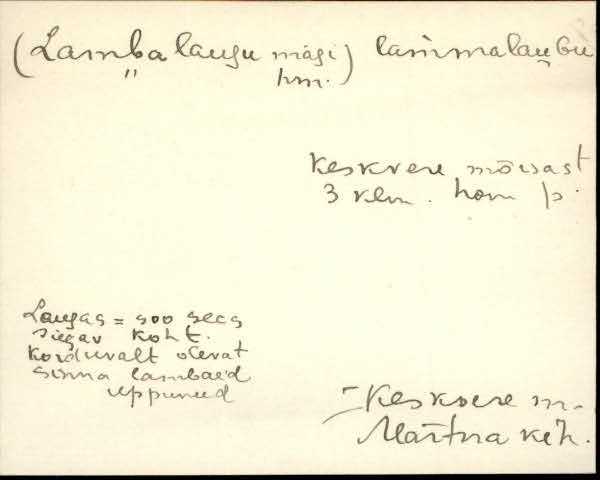 (Lamba laugu mägi) lam̀malau̬bu
hm.
Keskvere mõisast
3 klm. hom p.
Laugas = soo sees
sügav koht.
Korduvalt olevat
sinna lambaid
uppuned
Keskvere m.
Martna keh.